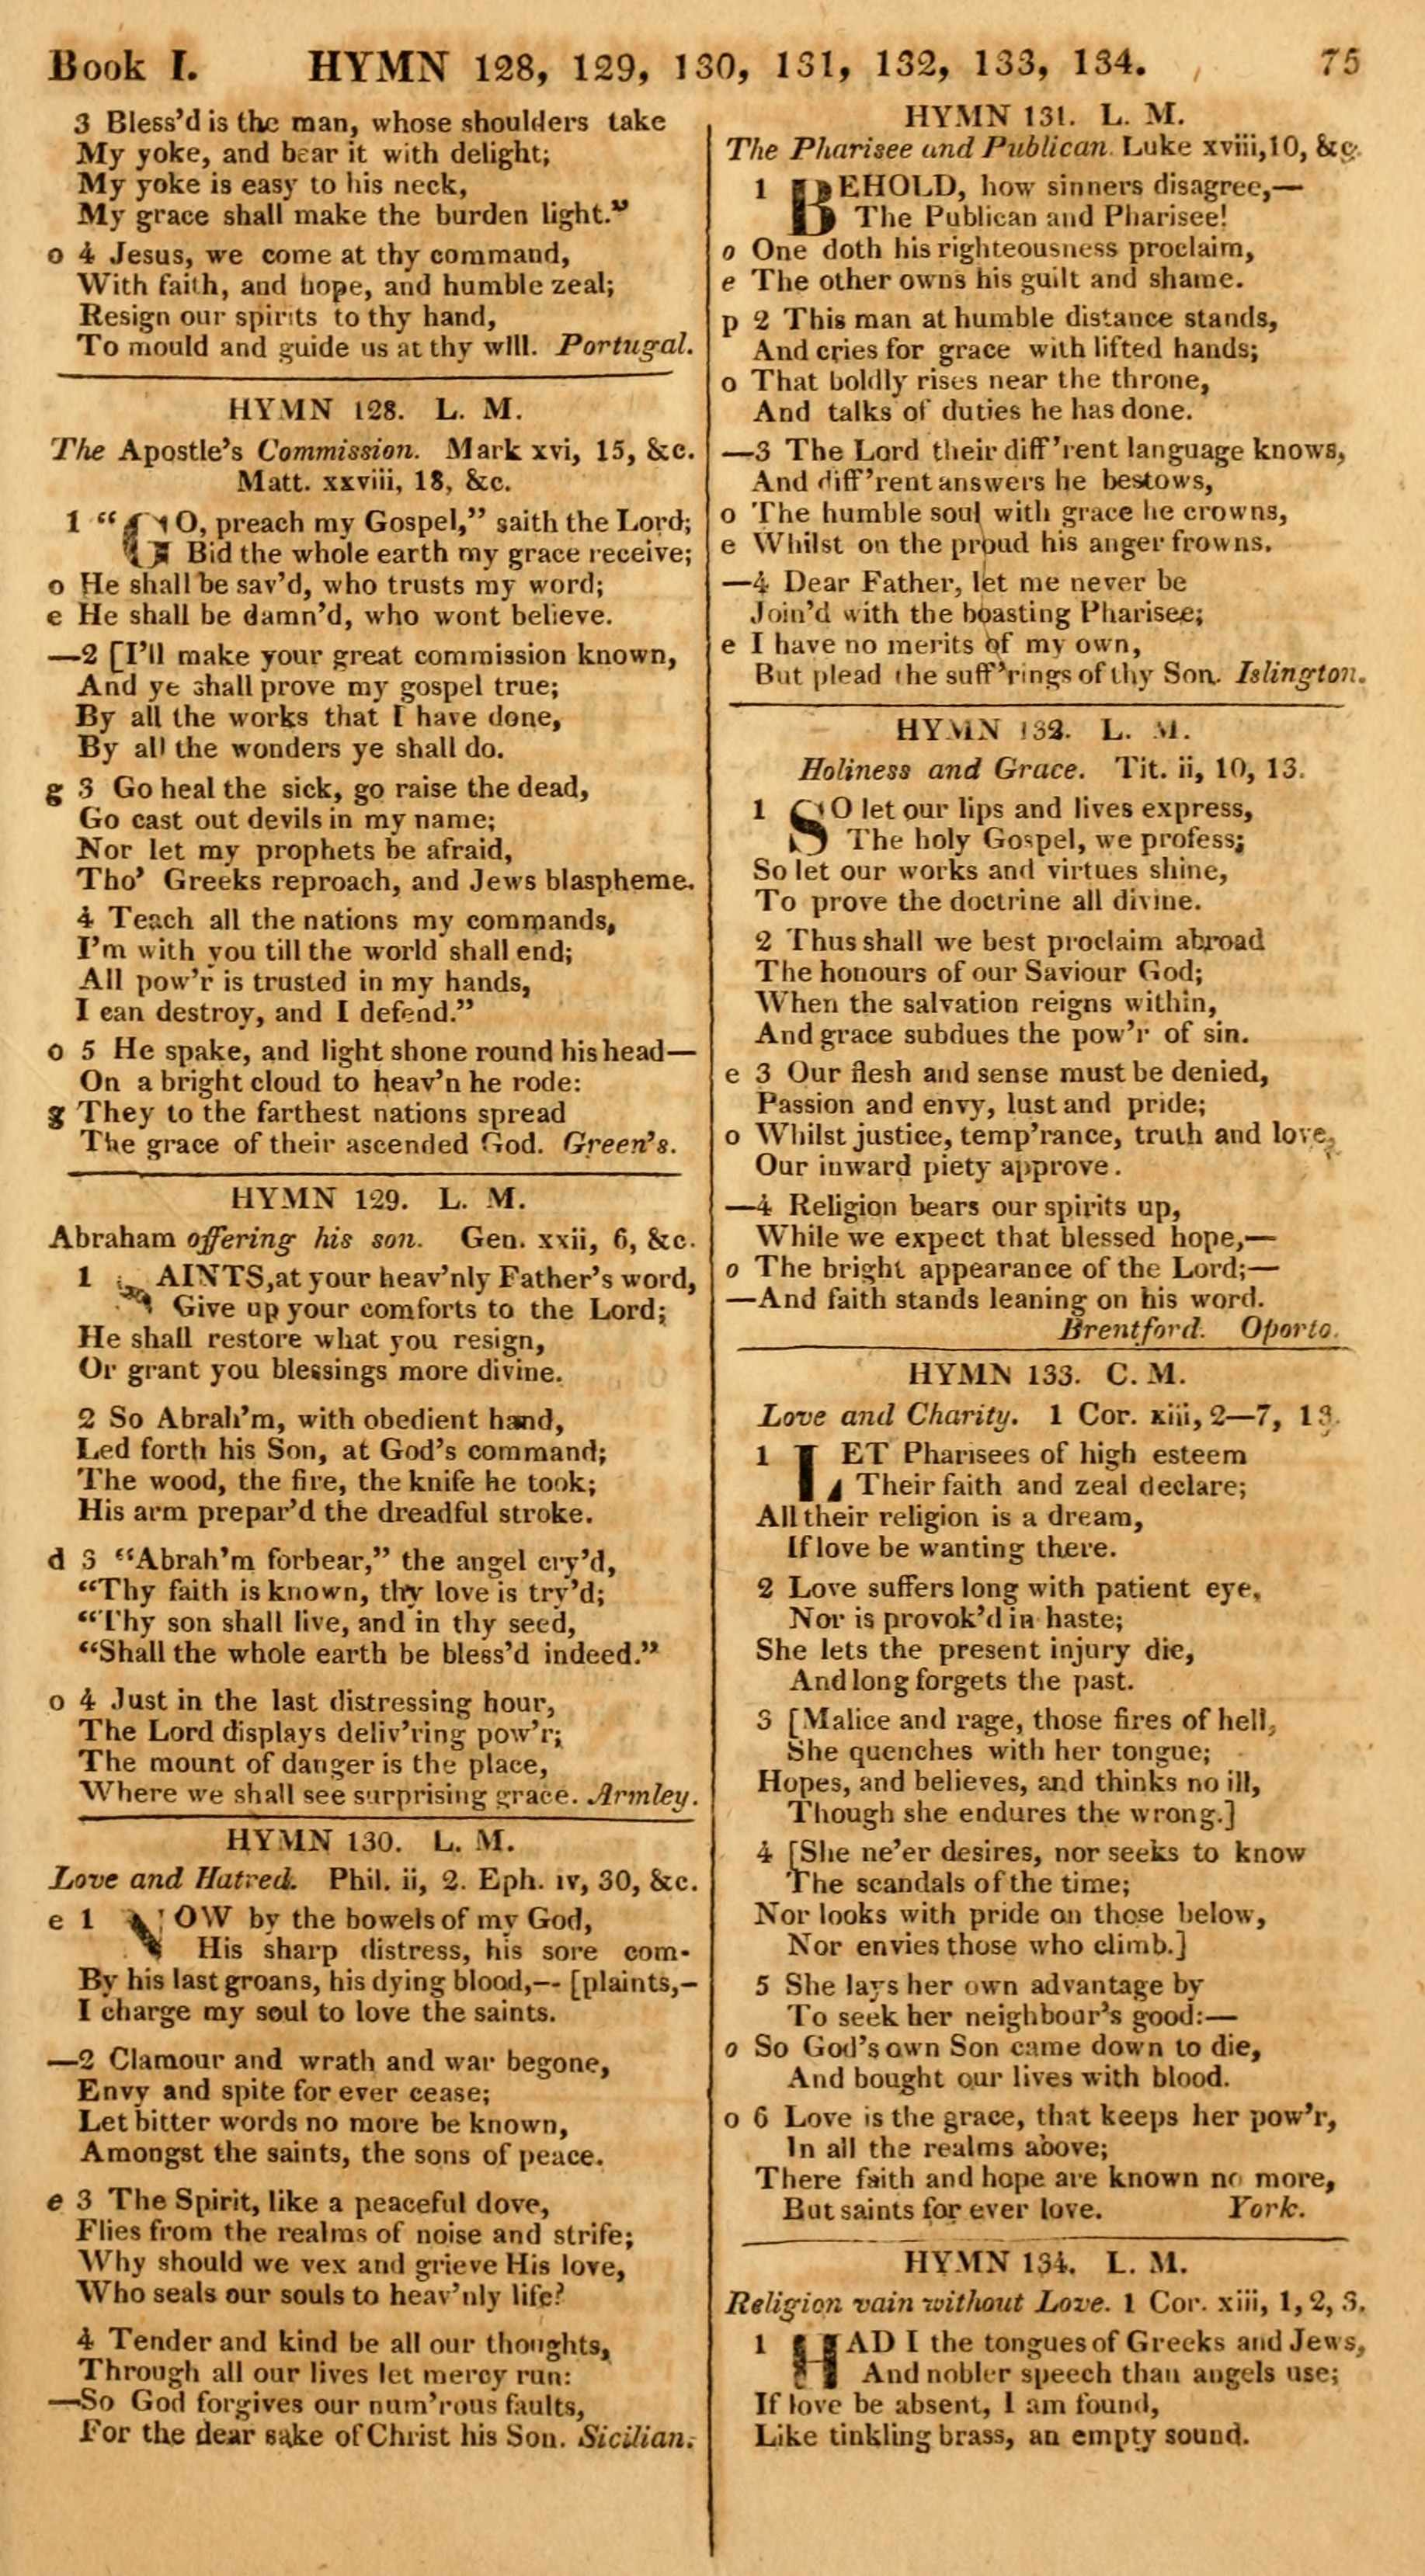 Book I. HYMN 128, 129, 130, 131, 132, 133, 134. 75
3 Bless'd is the man, whose shoulders take
My yoke, and bear it with delight;
My yoke is easy to his neck,
My grace shall make the burden light."
o 4 Jesus, we come at thy command,
With faith, and hope, and humble zeal;
Resign our spirits to thy hand,
To mould and guide us at thy will. Portugal.
HYMN 128. L. M.
The Apostle's Commission. Mark xvi, 15, &c.
Matt. xxviii, 18, &c.
1 "GO, preach my Gospel," saith the Lord;
Bid the whole earth my grace receive;
o He shall be sav'd, who trusts my word;
e He shall be damn'd, who wont believe.
—2 [I'll make your great commission known,
And ye shall prove my gospel true;
By all the works that I have done,
By all the wonders ye shall do.
g 3 Go heal the sick, go raise the dead,
Go cast out devils in my name;
Nor let my prophets be afraid,
Tho' Greeks reproach, and Jews blaspheme.
4 Teach all the nations my commands,
I'm with you till the world shall end;
All pow'r is trusted in my hands,
I can destroy, and I defend."
o 5 He spake, and light shone round his head—
On a bright cloud to heav'n he rode:
g They to the farthest nations spread
The grace of their ascended God. Green's.
HYMN 129. L. M.
Abraham offering his son. Gen. xxii, 6, &c.
1 SAINTS, at your heav'nly Father's word,
Give up your comforts to the Lord;
He shall restore what you resign,
Or grant you blessings more divine.
2 So Abrah'm, with obedient hand,
Led forth his Son, at God's command;
The wood, the fire, the knife he took;
His arm prepar'd the dreadful stroke.
d 3 "Abrah'm forbear," the angel cry'd,
"Thy faith is known, thy love is try'd;
"Thy son shall live, and in thy seed,
"Shall the whole earth be bless'd indeed."
o 4 Just in the last distressing hour,
The Lord displays deliv'ring pow'r;
The mount of danger is the place,
Where we shall see surprising grace. Armley.
HYMN 130. L. M.
Love and Hatred. Phil. ii, 2. Eph. iv, 30, &c.
e 1 NOW by the bowels of my God,
His sharp distress, his sore com-
By his last groans, his dying blood,-- [plaints,-
I charge my soul to love the saints.
—2 Clamour and wrath and war begone,
Envy and spite for ever cease;
Let bitter words no more be known,
Amongst the saints, the sons of peace.
e 3 The Spirit, like a peaceful dove,
Flies from the realms of noise and strife;
Why should we vex and grieve His love,
Who seals our souls to heav'nly life?
4 Tender and kind be all our thoughts,
Through all our lives let mercy run:
—So God forgives our num'rous faults,
For the dear sake of Christ his Son. Sicilian.
HYMN 131. L. M.
The Pharisee and Publican. Luke xviii, 10, &c.
1 BEHOLD, how sinners disagree,—
The Publican and Pharisee!
o One doth his righteousness proclaim,
e The other owns his guilt and shame.
p 2 This man at humble distance stands,
And cries for grace with lifted hands;
o That boldly rises near the throne,
And talks of duties he has done.
—3 The Lord their diff'rent language knows,
And diff'rent answers he bestows,
o The humble soul with grace he crowns,
e Whilst on the proud his anger frowns.
—4 Dear Father, let me never be
Join'd with the boasting Pharisee;
e I have no merits of my own,
But plead the suff'rings of thy Son. Islington.
HYMN 132. L. M.
Holiness and Grace. Tit. ii, 10, 13.
1 SO let our lips and lives express,
The holy Gospel, we profess;
So let our works and virtues shine,
To prove the doctrine all divine.
2 Thus shall we best proclaim abroad
The honours of our Saviour God;
When the salvation reigns within,
And grace subdues the pow'r of sin.
e 3 Our flesh and sense must be denied,
Passion and envy, lust and pride;
o Whilst justice, temp'rance, truth and love,
Our inward piety approve.
—4 Religion bears our spirits up,
While we expect that blessed hope,—
o The bright appearance of the Lord;—
—And faith stands leaning on his word.
Brentford. Oporto.
HYMN 133. C. M.
Love and Charity. 1 Cor. xiii, 2—7, 13.
1 LET Pharisees of high esteem
Their faith and zeal declare;
All their religion is a dream,
If love be wanting there.
2 Love suffers long with patient eye,
Nor is provok'd in haste;
She lets the present injury die,
And long forgets the past.
3 [Malice and rage, those fires of hell,
She quenches with her tongue;
Hopes, and believes, and thinks no ill,
Though she endures the wrong.]
4 [She ne'er desires, nor seeks to know
The scandals of the time;
Nor looks with pride on those below,
Nor envies those who climb.]
5 She lays her own advantage by
To seek her neighbour's good:—
o So God's own Son came down to die,
And bought our lives with blood.
o 6 Love is the grace, that keeps her pow'r,
In all the realms above;
There faith and hope are known no more,
But saints for ever love. York.
HYMN 134. L. M.
Religion vain without Love. 1 Cor. xiii, 1, 2, 3.
1 HAD I the tongues of Greeks and Jews,
And nobler speech than angels use;
If love be absent, I am found,
Like tinkling brass, an empty sound.